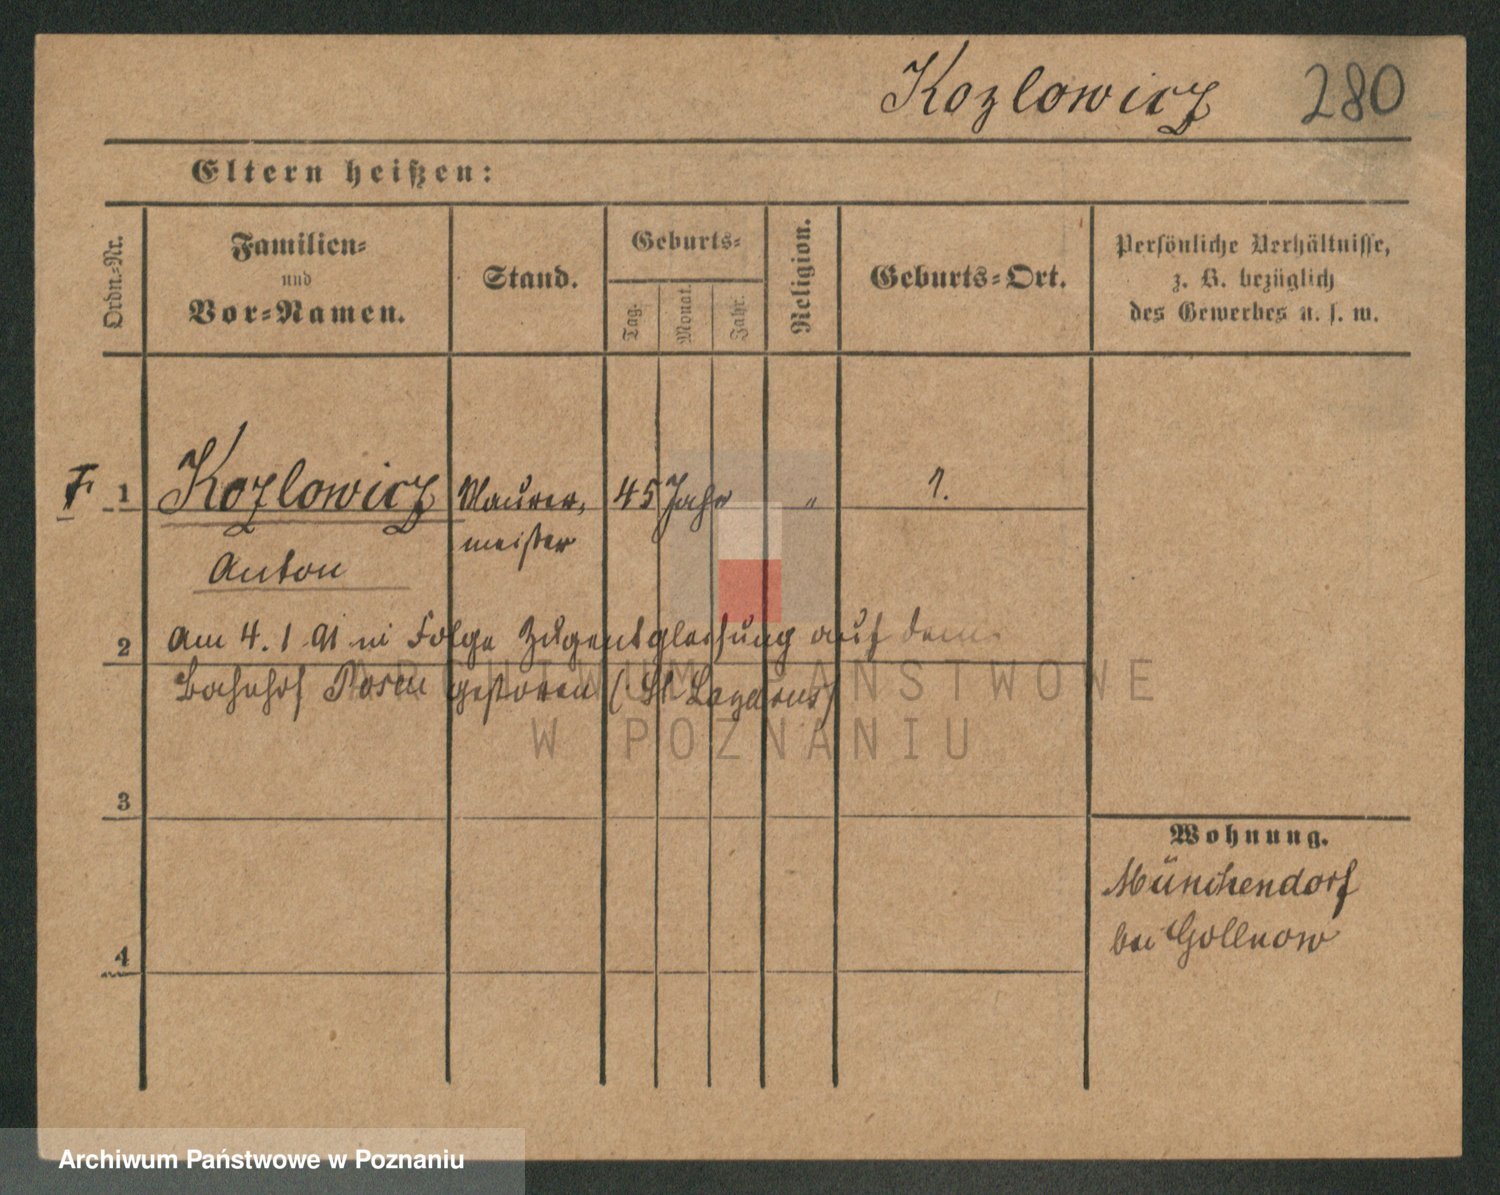 Kozlowicz 280
Eltern heißen:
Ordn.=Nr.
Familien=
und
Vor=Namen.
Stand.
Geburts=
Tag.
Monat.
Jahr.
Religion.
Geburts=Ort.
Persönliche Verhältnisse,
z. B. bezüglich
des Gewerbes u. s. w.
1 Kozlowicz Maurer, 45 Jahr " 1.
meister
Anton
2 am 4. 1 91 in Folge Zugentgleisung auf dem
Bahnhof Posen gestorben (St Lazarus)
3
Wohnung.
Münchendorf
bei Gollnow
4
ARCHIWUM PAŃSTWOWE
W POZNANIU
Archiwum Państwowe w Poznaniu